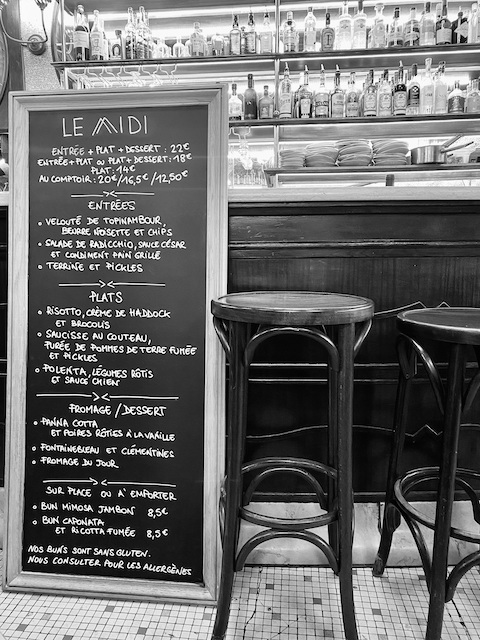 LE MIDI
ENTRÉE + PLAT + DESSERT : 22€
ENTRÉE+PLAT OU PLAT+DESSERT: 18€
PLAT: 14€
AU COMPTOIR: 20€/16,5€/12,50€
ENTRÉES
VELOUTÉ DE TOPINAMBOUR,
BEURRE NOISETTE ET CHIPS
SALADE DE RADICCHIO, SAUCE CÉSAR
ET CONDIMENT PAIN GRILLÉ
TERRINE ET PICKLES
PLATS
RISOTTO, CRÈME DE HADDOCK
ET BROCOLIS
SAUCISSE AU COUTEAU,
PURÉE DE POMMES DE TERRE FUMÉE
ET PICKLES
POLENTA, LÉGUMES RÔTIS
ET SAUCE CHIEN
FROMAGE/DESSERT
PANNA COTTA
ET POIRES RÔTIES À LA VANILLE
FONTAINEBLEAU ET CLÉMENTINES
FROMAGE DU JOUR
SUR PLACE OU A' EMPORTER
BUN MIMOSA JAMBON 8,5€
BUN CAPONATA
ET RICOTTA FUMÉE 8,5€
NOS BUNS SONT SANS GLUTEN.
NOUS CONSULTER POUR LES ALLERGÈNES